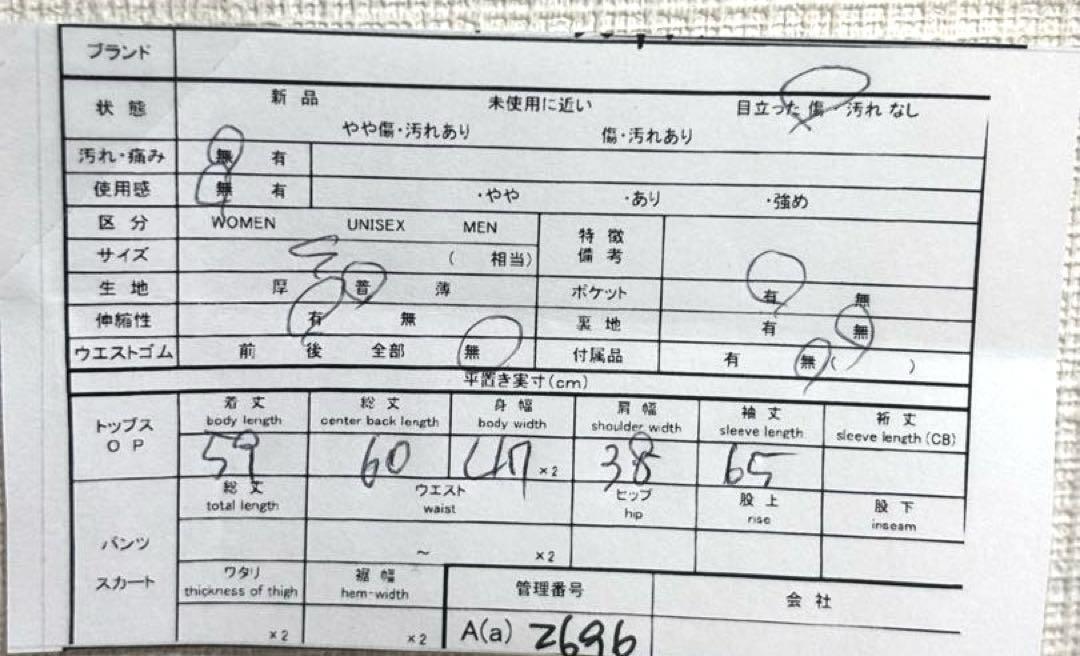 ブランド
状態 新品 未使用に近い 目立った傷・汚れなし
やや傷・汚れあり 傷・汚れあり
汚れ・痛み 無 有
使用感 無 有 ・やや ・あり ・強め
区分 WOMEN UNISEX MEN 特徴
備考
サイズ ( 相当)
生地 厚 普 薄 ポケット 有 無
伸縮性 有 無 裏地 有 無
ウエストゴム 前 後 全部 無 付属品 有 無( )
平置き実寸(cm)
トップス
OP
着丈 総丈 身幅 肩幅 袖丈 裄丈
body length center back length body width shoulder width sleeve length sleeve length (CB)
59 60 47 ×2 38 65
総丈 ウエスト ヒップ 股上 股下
total length waist hip rise inseam
パンツ
スカート
~ ×2
ワタリ 裾幅 管理番号 会社
thickness of thigh hem-width
×2 ×2 A(a) 2696